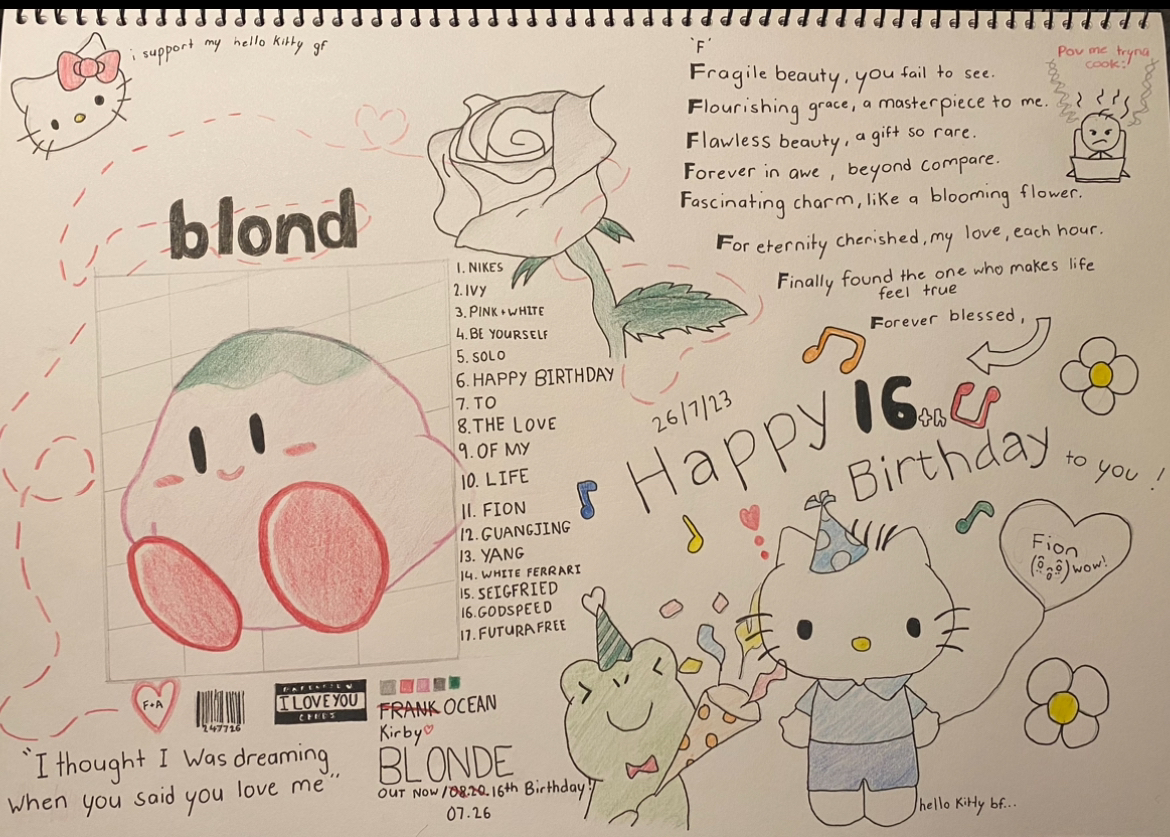 i support my hello kitty gf
'F'
Fragile beauty, you fail to see.
Flourishing grace, a masterpiece to me.
Flawless beauty, a gift so rare.
Forever in awe, beyond compare.
Fascinating charm, like a blooming flower.
For eternity cherished, my love, each hour.
Finally found the one who makes life
feel true
Forever blessed,
Pov me tryna
cook:
blond
1. NIKES
2. IVY
3. PINK + WHITE
4. BE YOURSELF
5. SOLO
6. HAPPY BIRTHDAY
7. TO
8. THE LOVE
9. OF MY
10. LIFE
11. FION
12. GUANGJING
13. YANG
14. WHITE FERRARI
15. SEIGFRIED
16. GODSPEED
17. FUTURA FREE
26/7/23
Happy 16th
Birthday to you!
Fion
wow!
F+A
247726
I LOVE YOU
FRANK OCEAN
Kirby
BLONDE
OUT NOW / 08.20. 16th Birthday!!
07.26
"I thought I was dreaming
when you said you love me"
hello kitty bf...